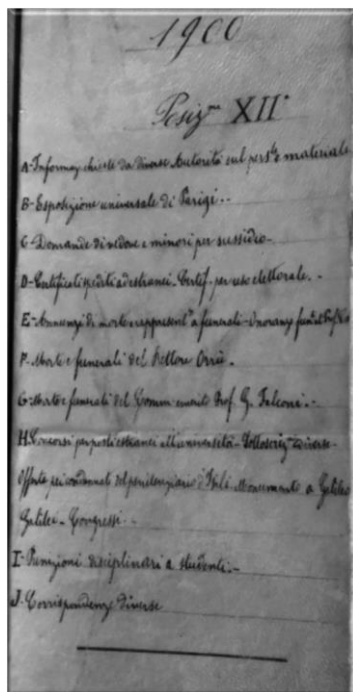 1900
Posiz.ne XII.a
A- Informaz. chieste da diverse Autorità sul pers.le e materiale
B- Esposizione universale di Parigi. -
C- Domande di vedove e minori per sussidio -
D- Certificati spediti ad estranei. Certif. per uso elettorale. -
E- Annunzi di morte e rappresent.e a funerali - Onoranz.
F- Morte e funerali del Rettore Orrù. -
G- Morte e funerali del Comm. emerito Prof. G. Falconi. -
H- Concorsi per posti estranei all'università - Sottoscriz. diverse -
Offerte pei condannati del penitenziario d'Isili - Monumento a Galileo
Galilei - Congressi -
I- Punizioni disciplinari a studenti. -
J- Corrispondenze diverse